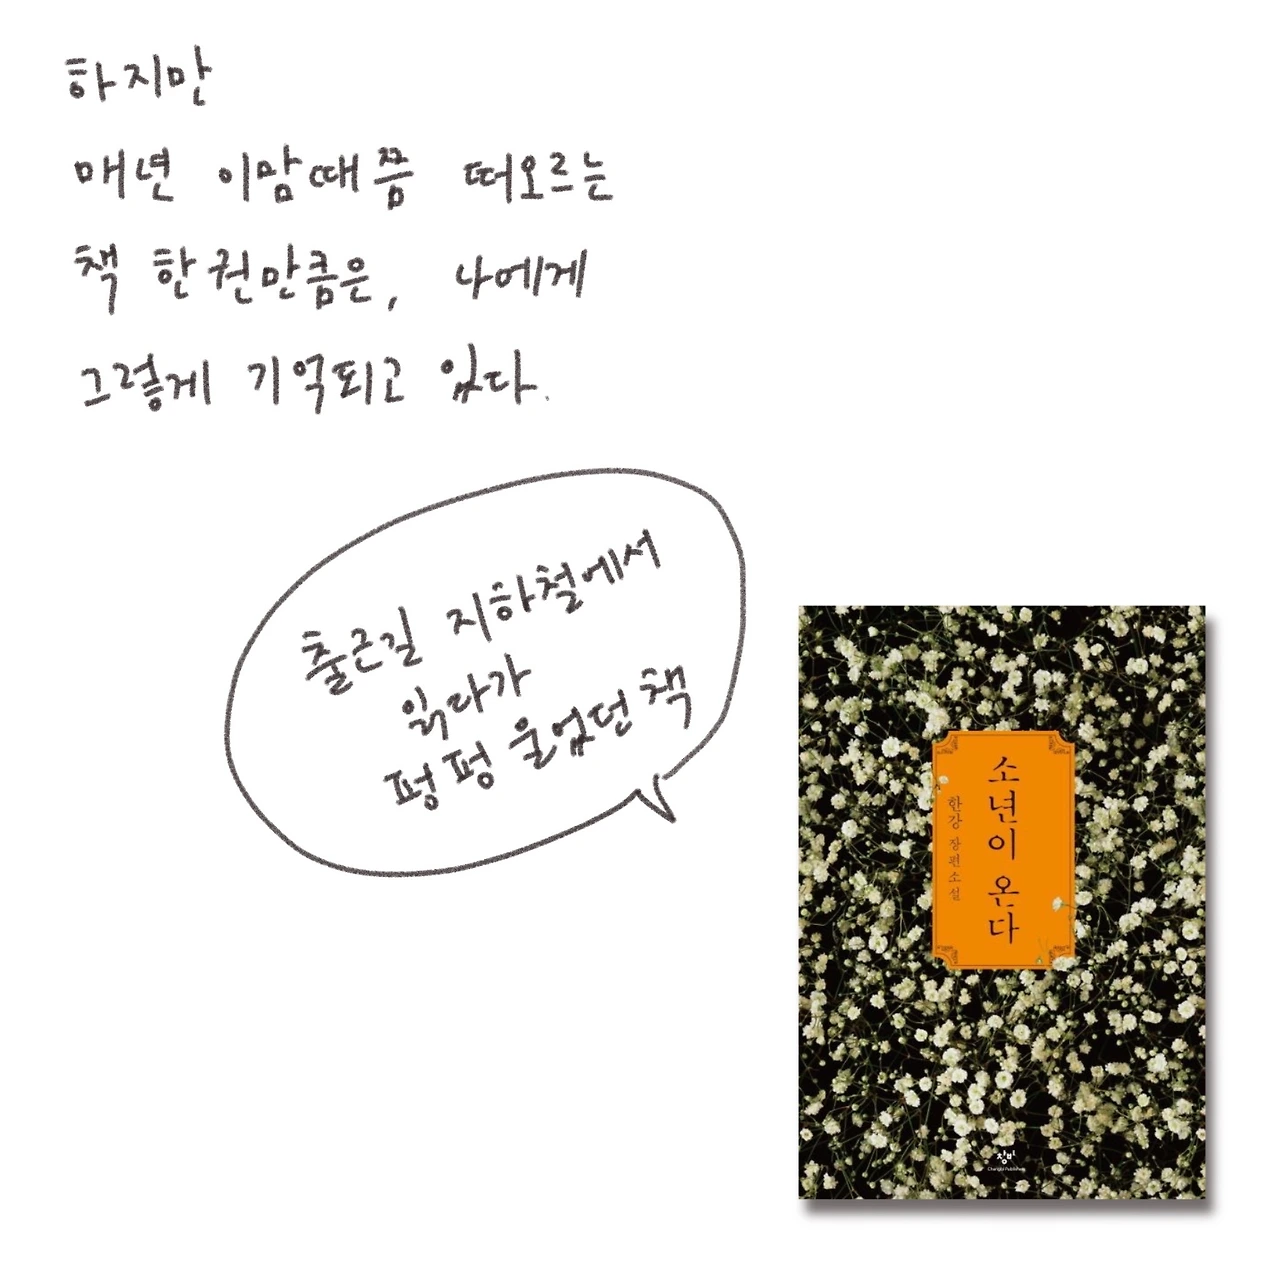 하지만
매년 이맘때쯤 떠오르는
책 한권만큼은, 나에게
그렇게 기억되고 있다.
출근길 지하철에서
읽다가
펑펑 울었던 책
소년이 온다
한강 장편소설
창비
Changbi Publishers